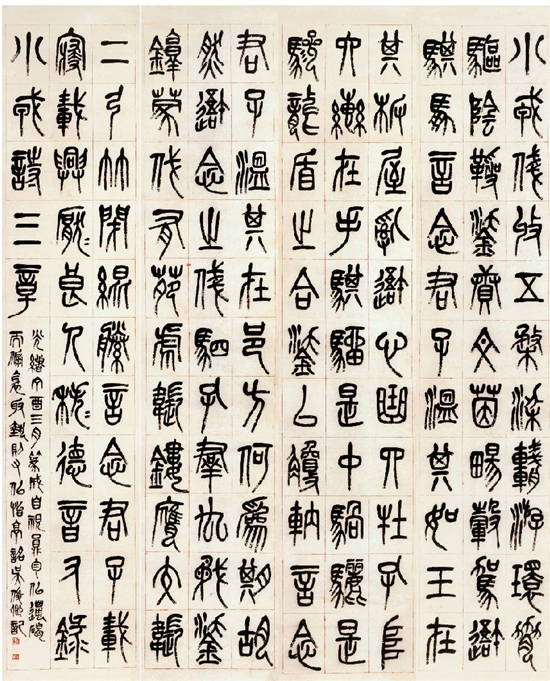 小戎俴收五楘梁輈游環脅
驅陰靷鋈續文茵暢轂駕我
騏馵言念君子溫其如玉在
其板屋亂我心曲四牡孔阜
六轡在手騏駵是中騧驪是
驂龍盾之合鋈以觼軜言念
君子溫其在邑方何為期胡
然我念之俴駟孔羣厹矛鋈
錞蒙伐有苑虎韔鏤膺交韔
二弓竹閉緄縢言念君子載
寢載興厭〻良人秩〻德音又錄
小戎詩三章
光緒丁酉三月篆成自視自似
吳俊卿記